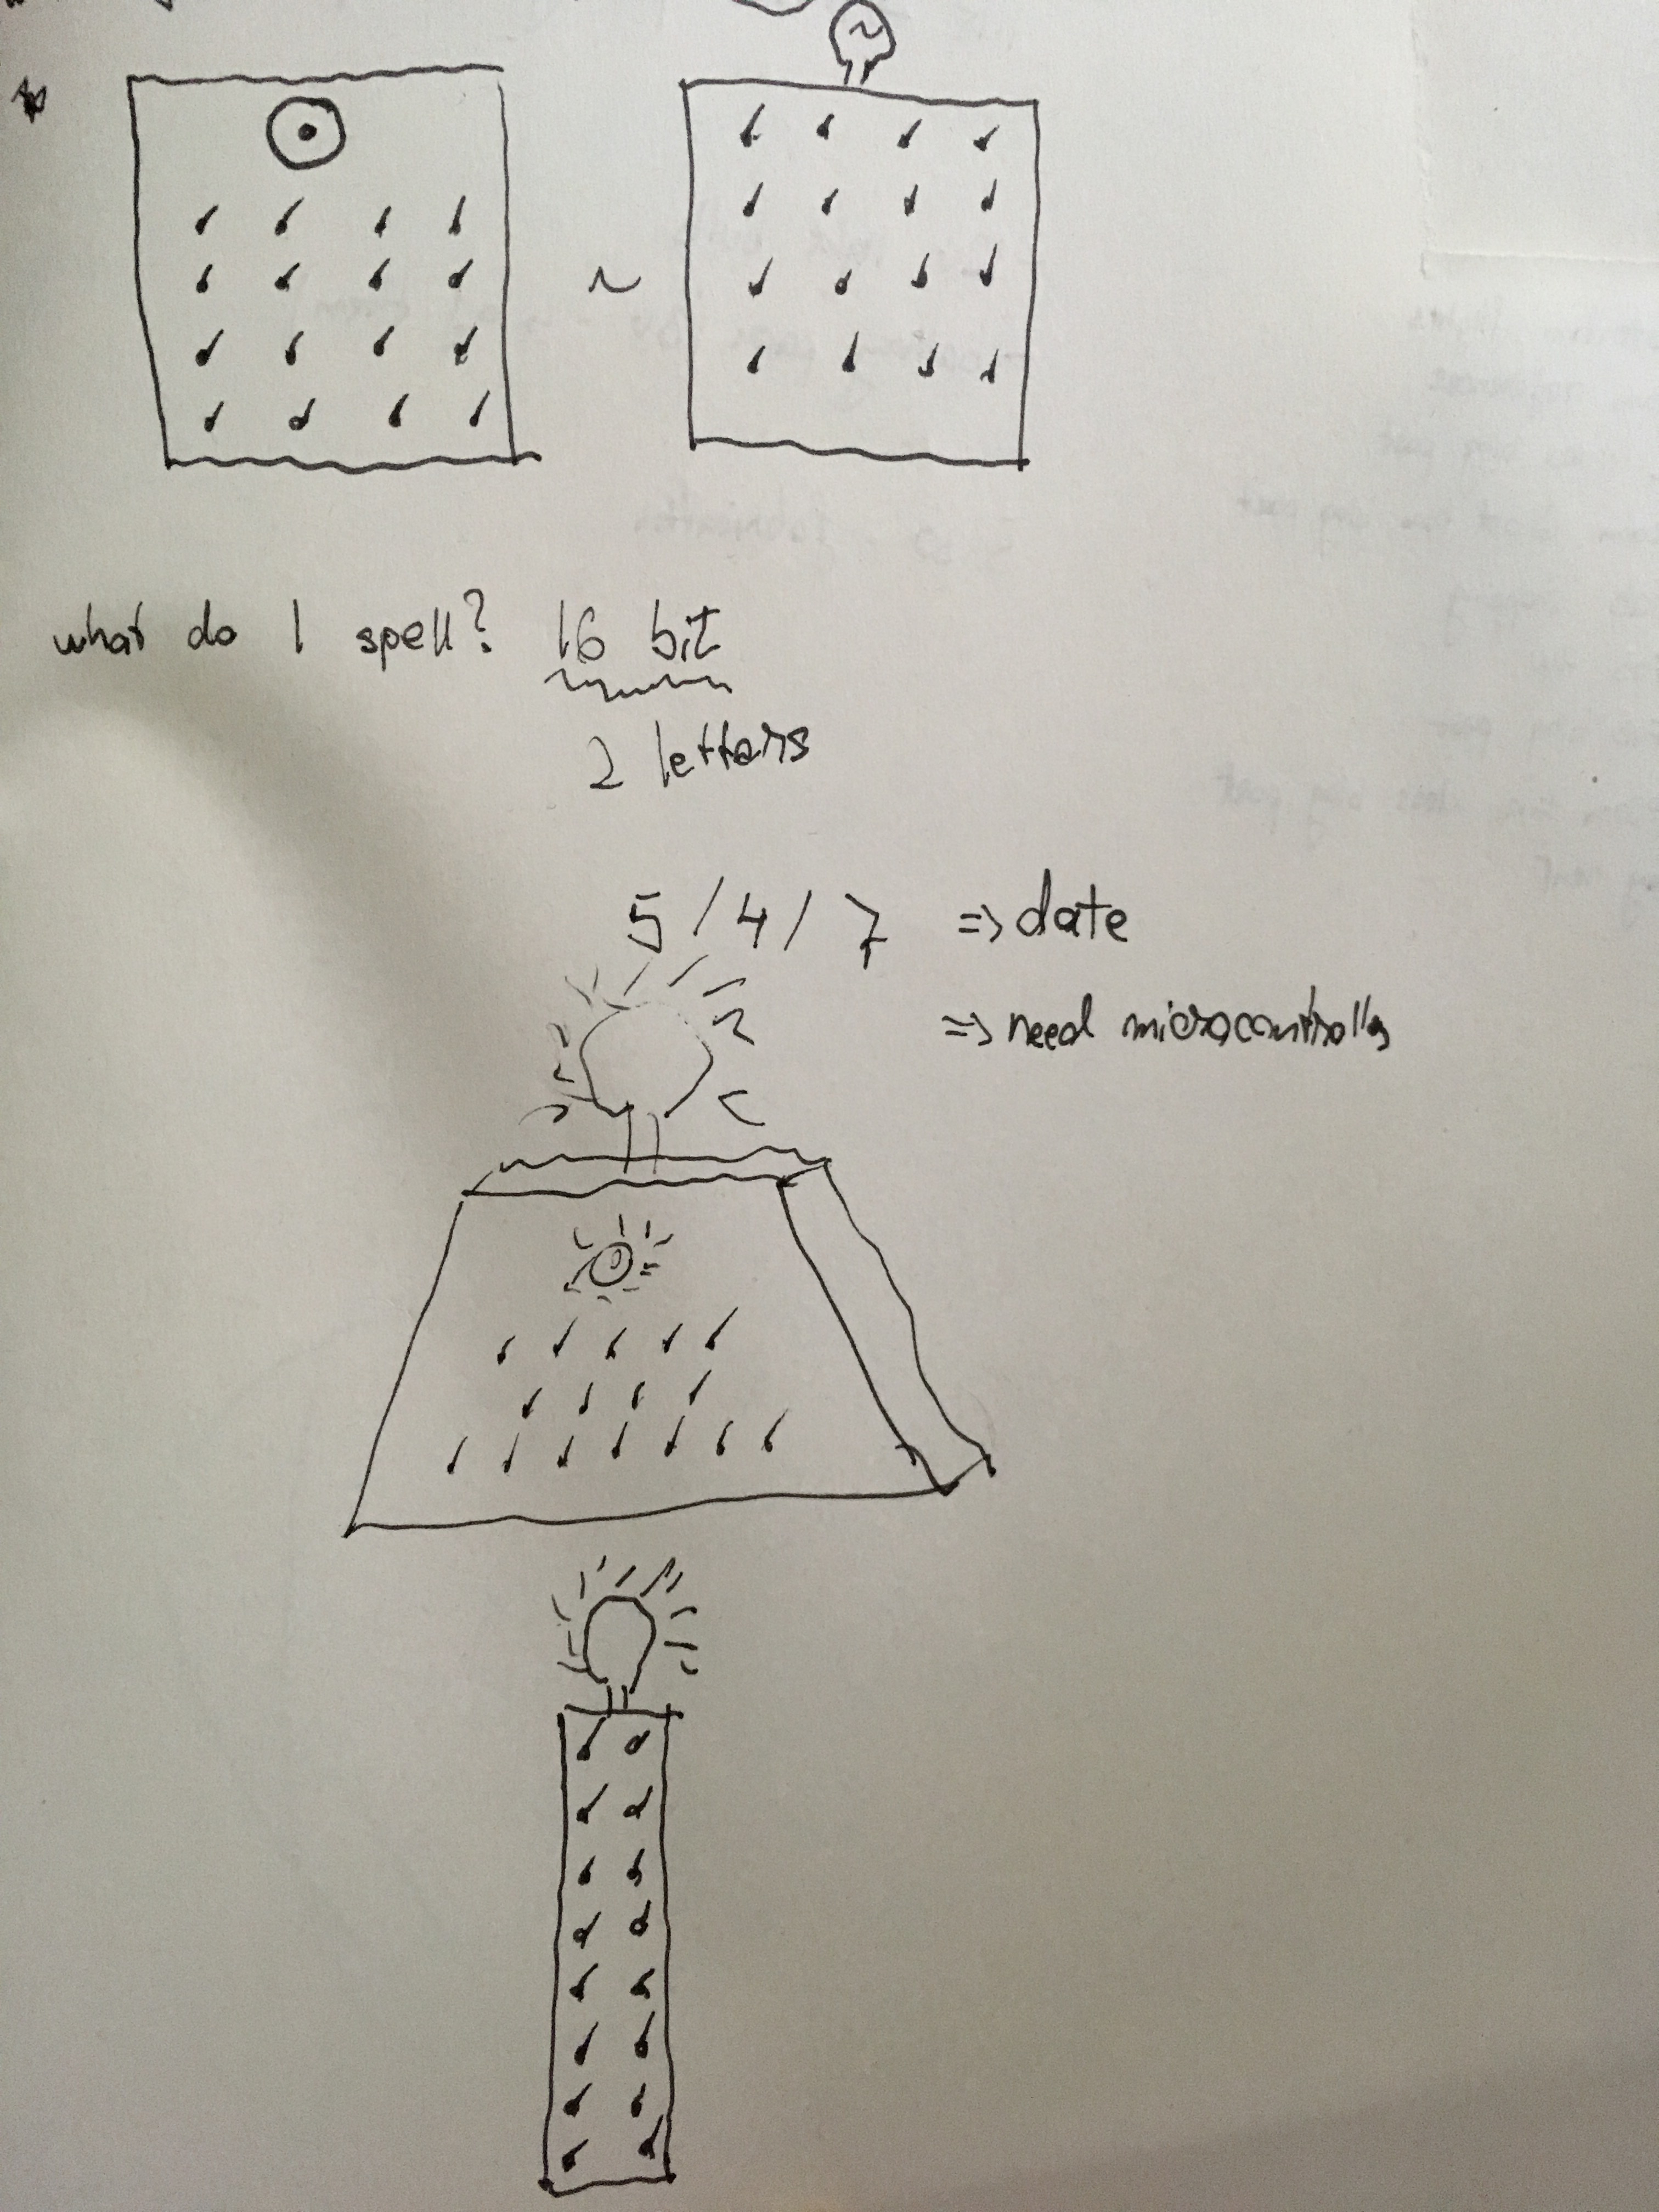 ~
what do I spell? 16 bit
2 letters
5 / 4 / 7 => date
=> need microcontroller